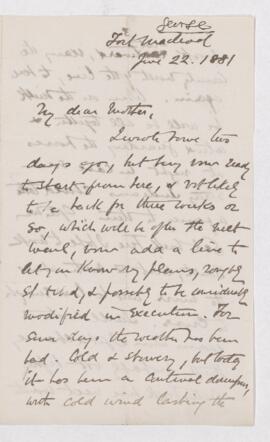 George
Fort Macleod
June 22. 1881
My dear Mother,
I wrote some two
days ago, but being now ready
to start from here, & not likely
to be back for three weeks or
so, which will be after the next
mail, now add a line to
let you know my plans, roughly
sketched, & possibly to be considerably
modified in execution. For
some days the weather has been
bad. Cold & showery, but today
it has been a continual downpour,
with cold wind lashing the